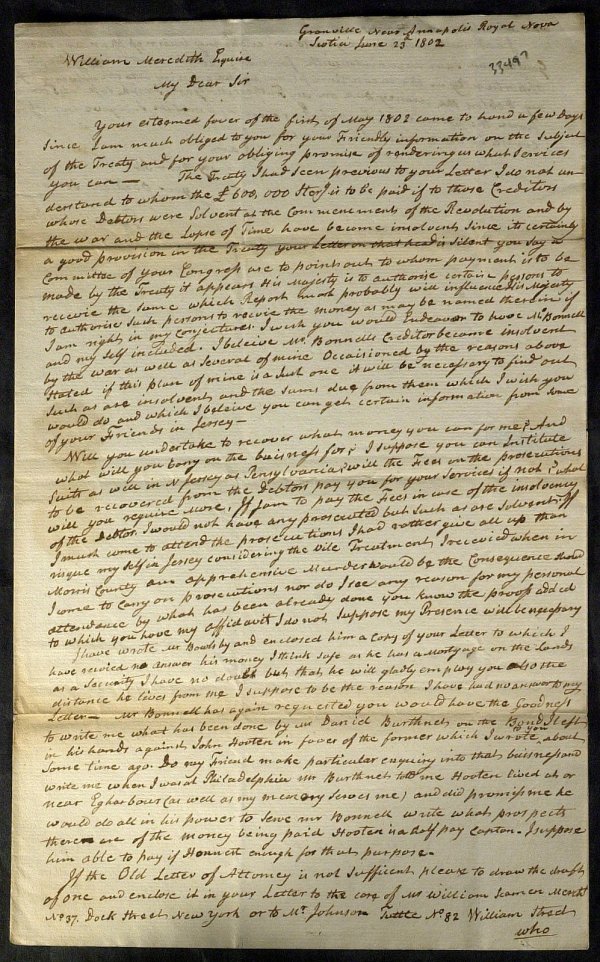 Granville Near Annapolis Royal Nova
Scotia June 23d 1802
33497
William Meredith Equire
My Dear Sir
Your esteemed favor of the first of May 1802 came to hand a few Days
since I am much obliged to you for your Friendly information on the Subject
of the Treaty and for your obliging promise of rendering us what Services
you can — The Treaty I had seen previous to your Letter I do not un-
derstand to whom the £600,000 Sterg is to be paid if to those Creditors
whose Debtors were Solvent at the Commencments of the Revolution and by
the war and the Lapse of Time have become insolvent Since its certainly
a good provision in the Treaty your Letter on that head is Silent you Say a
Committee of your Congress are to point out to whom payment is to be
made by the Treaty it appears His Majesty is to authorise certain persons to
recevie the Same which Report most probably will influence His Majesty
to authorise Such persons to recevie the money as may be named therein if
I am right in my conjectures I wish you would Endeavor to have Mr Bonnell
and my Self included. I beleive Mr. Bonnells Creditor became insolvent
by the war as well as Several of mine Occaisioned by the reasons above
Stated if this plan of mine is a Just one it will be necessary to find out
Such as are insolvent and the Sums due from them which I wish you
would do and which I beleive you can get certain information from Some
of your Friends in Jersey —
Will you undertake to recover what money you can for me? And
what will you carry on the buisness for? I suppose you can Institute
Suits as well in N Jersey as Pensylvania? will the Fees on the prosecutions
to be recovered from the Debtors pay you for your Services if not? what
will you require more. If I am to pay the Fees in case of the insolvency
of the Debtor I would not have any prosecuted but Such as are Solvent. If
I must come to attend the prosecutions I had rather give all up than
risque my Self in Jersey considering the Vile Treatment I recevied when in
Morris County am apprehensive Murder would be the Consequence should
I come to Carry on prosecutions nor do I see any reason for my personal
attendance by what has been already done you know the proofs aded
to which you have my affidavit I do not Suppose my Presence will be necessary
I have wrote Mr Bowlsby and enclosed him a Copy of your Letter to which I
have recvied no answer his money I think Safe as he has a Mortgage on the Lands
as a Security I have no doubt but that he will gladly employ you also the
distance he lives from me I suppose to be the reason I have had no answer to my
Letter — Mr Bonnell has again requested you would have the Goodness
to write me what has been done by Mr David Burthnet on the Bond I left
in his hands against John Hooten in favor of the former which I wrote to you about
Some time ago. Do my Friend make particular enquiry into that buisness and
write me when I was at Philadelphia Mr Burthnet told me Hooten lived at or
near Egharbour (as well as my memory Serves me) and did promise me he
would do all in his power to Serve Mr Bonnell write what prospects
there are of the money being paid Hooten is a half pay Captn. I suppose
him able to pay if Honnest enough for that purpose.
If the Old Letter of Attorney is not Sufficent please to draw the draft
of one and enclose it in your Letter to the care of Mr William Seamen Mercht
No 37. Dock Street New York or to Mr. Johnson Tuttle No 82 William Street
who